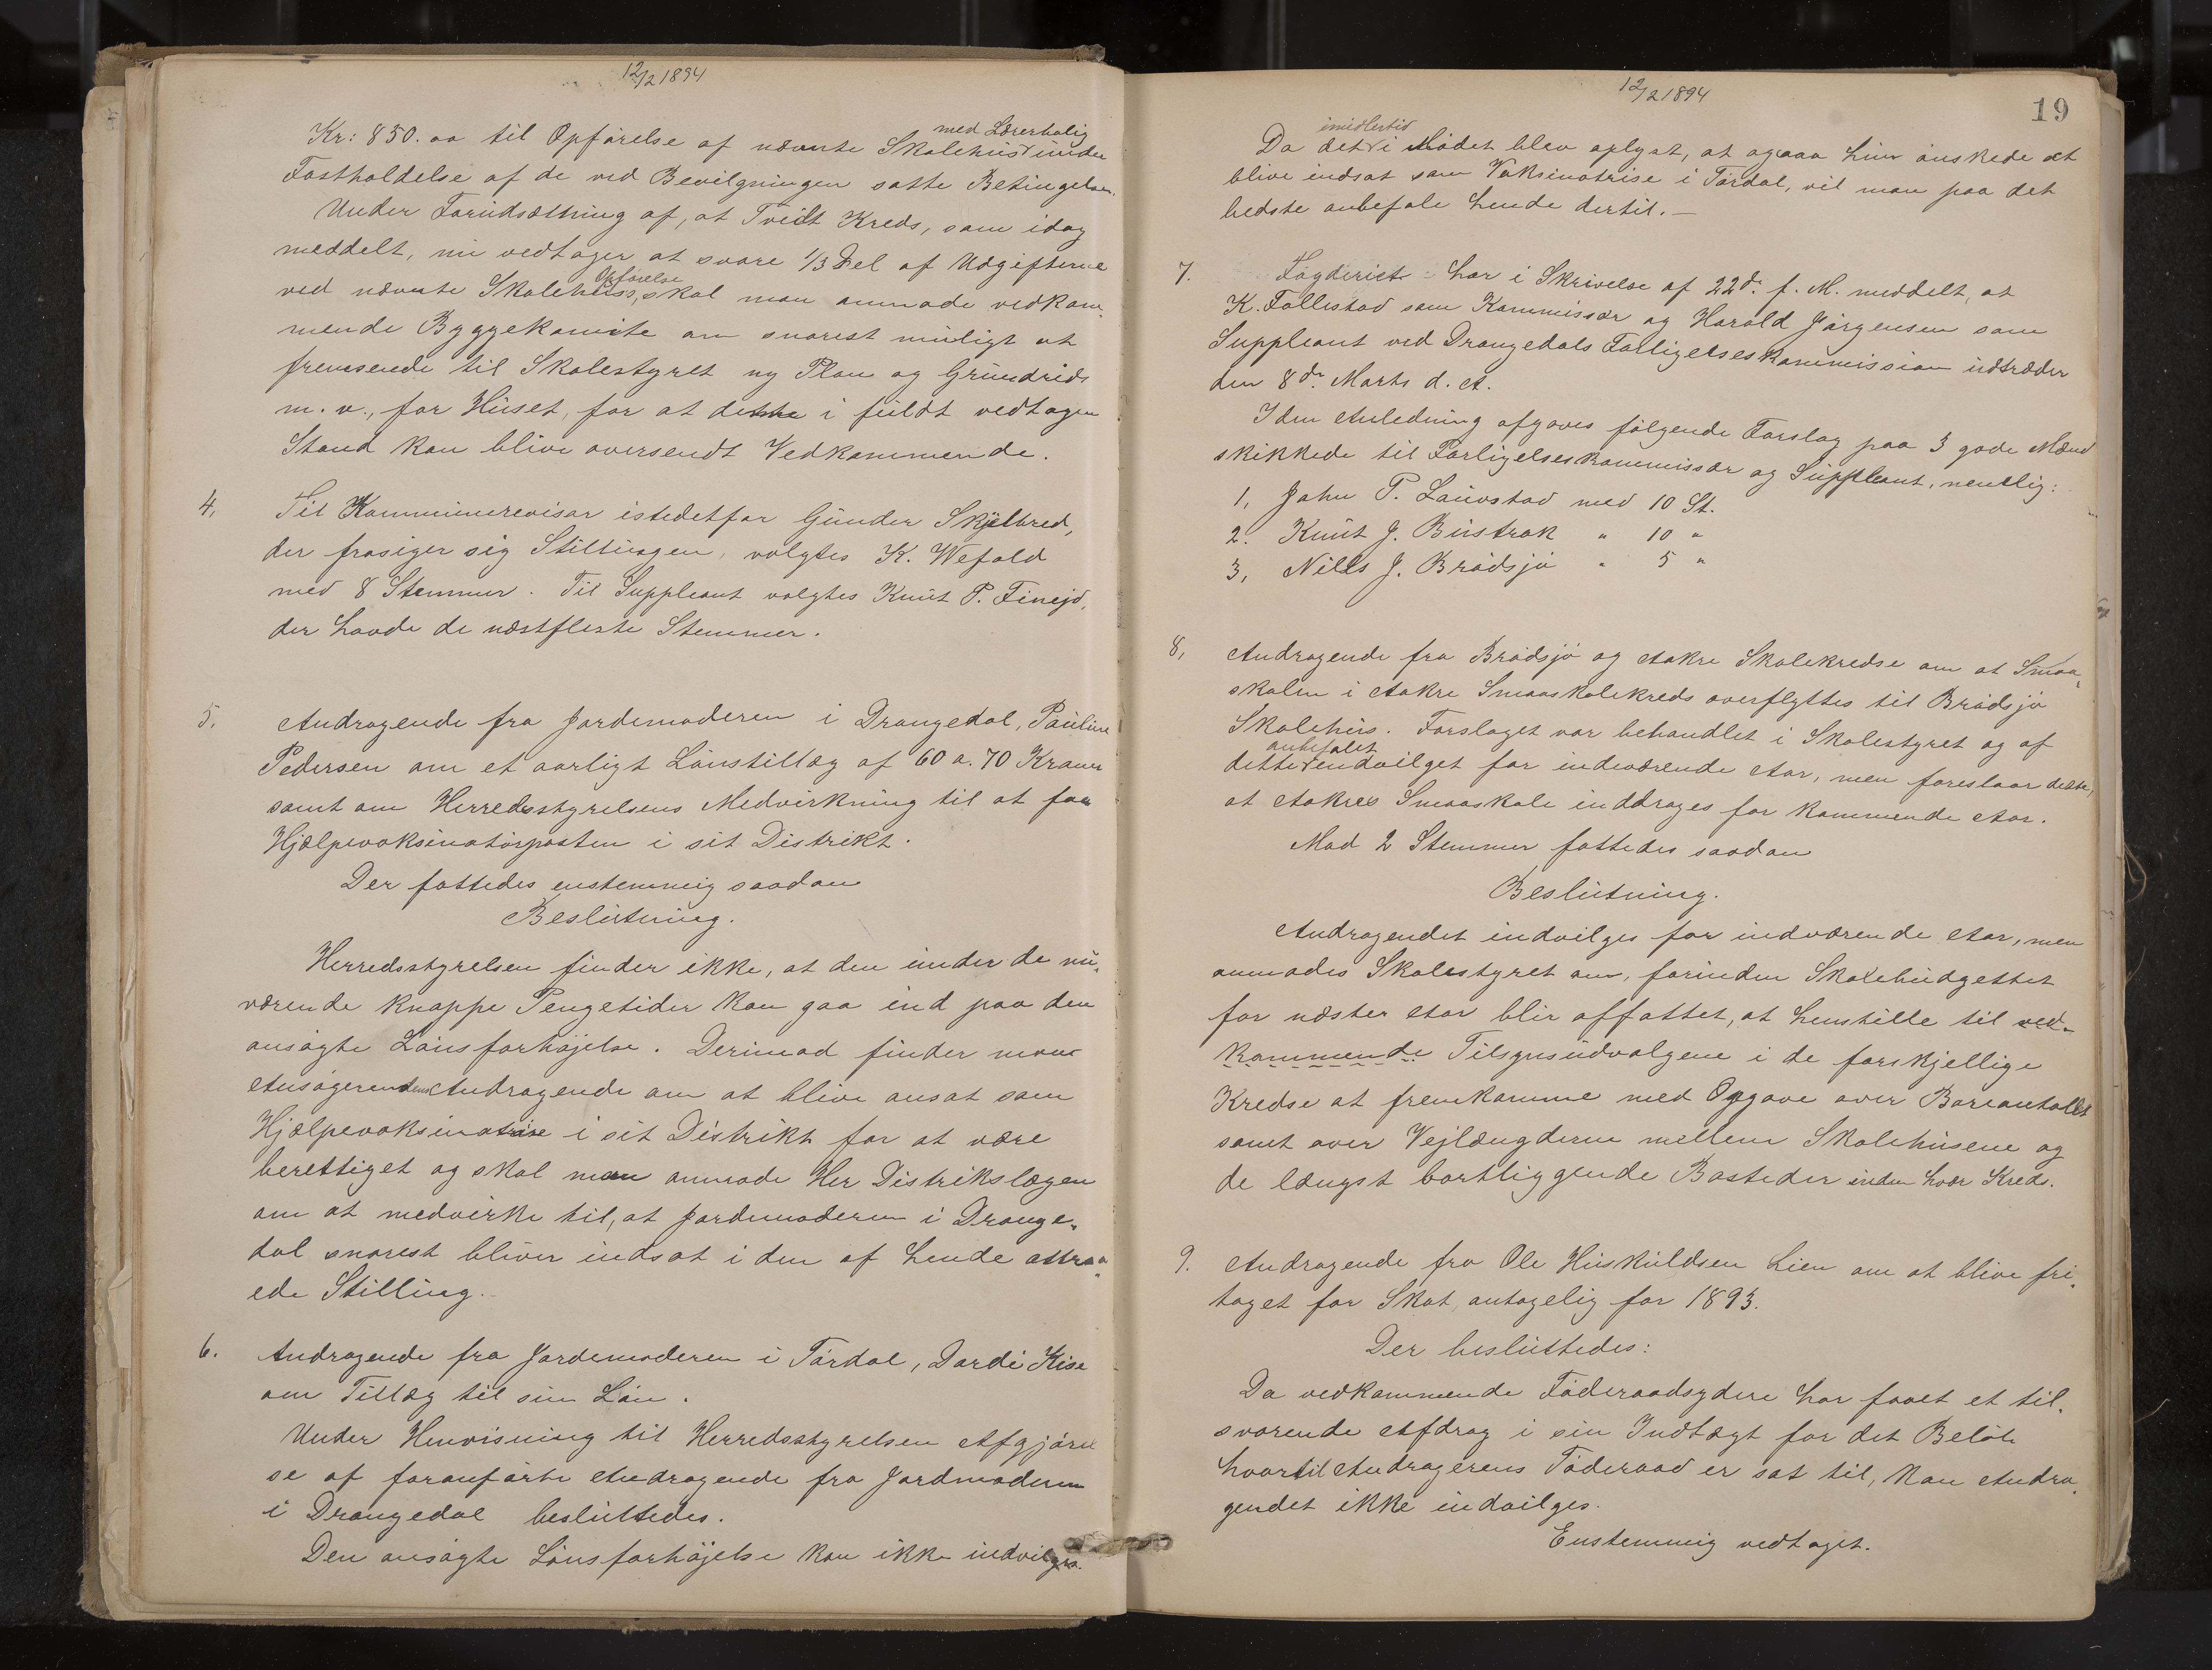 12/2 1894
med Lærerbolig
Kr: 850.00 til Opførelse af nævnte Skolehus under
Fastholdelse af de ved Bevilgningen satte Betingelser.
Under Forudsætning af, at Tveit Kreds, som idag
meddelt, nu vedtager at svare 1/3 Del af Udgifterne
Opførelse
ved nævnte Skolehuss, skal man anmode vedkom-
mende Byggekomite om snarest muligt at
fremsende til Skolestyret ny Plan og Grundrids
m. v., for Huset, for at dette i fuldt vedtagen
Stand kan blive oversendt Vedkommende.
4, Til Kommunerevisor istedetfor Gunder Skjelbred,
der frasiger sig Stillingen, valgtes K. Wefald
med 8 Stemmer. Til Suppleant valgtes Knut P.
der havde de næstfleste Stemmer.
5. Andragende fra Jordemoderen i Drangedal, Pauline
Pedersen om et aarligt Lønstillæg af 60 a. 70 Kroner
samt om Herredsstyrelsens Medvirkning til at faa
Hjælpevaksinatørposten i sit Distrikt.
Der fattedes enstemmig saadan
Beslutning.
Herredsstyrelsen finder ikke, at den under de nu-
værende knappe Pengetider kan gaa ind paa den
ansøgte Lønsforhøjelse. Derimod finder man
Ansøgerendens Andragende om at blive ansat som
Hjælpevaksinatrise i sit Distrikt for at være
berettiget og skal man anmode Her Distrikslægen
om at medvirke til, at Jordemoderen i Drange-
dal snarest bliver indsat i den af hende attraa-
ede Stilling.
6. Andragende fra Jordemoderen i Tørdal, Dardi Kise
om Tillæg til sin Løn.
Under Henvisning til Herredsstyrelsen Afgjørel
se af foranførte Andragende fra Jordmoderen
i Drangedal besluttedes.
Den ansøgte Lønsforhøjelse kan ikke indvilges.
12/2 1894
19
imidlertid
Da det i Mødet blev oplyst, at ogsaa hun ønskede at
blive indsat som Vaksinatrise i Tørdal, vil man paa det
bedste anbefale hende dertil.—
7. Fogderiet har i Skrivelse af 22de f. M. meddelt, at
K. Follestad som Kommissær og Harald Jørgensen som
Suppleant ved Drangedals Forligelseskommission udtræder
den 8de Marts d. A.
I den Anledning afgaves følgende Forslag paa 3 gode Mænd
skikkede til Forligelseskommissær og Suppleant, nemlig:
1, John P. Lauvstad med 10 St.
2. Knut J. Bustrak " 10 "
3, Nills J. Brødsjø " 5 "
8, Andragende fra Brødsjø og Aakre Skolekredse om at Smaa-
skolen i Aakre Smaaskolekreds overflyttes til Brødsjø
Skolehus. Forslaget var behandlet i Skolestyret og af
anbefalet
dette endvilget for indeværende Aar, men foreslaar dette,
at Aakres Smaaskole inddrages for kommende Aar.
Mod 2 Stemmer fattedes saadan
Beslutning.
Andragendet indvilges for indværende Aar, men
anmodes Skolestyret om, forinden Skolebudgettet
for næste Aar blir affattet, at henstille til ved-
kommende Tilsynsudvalgene i de forskjellige
Kredse at fremkomme med Opgave over Barnantallet
samt over Vejlængderne mellem Skolehusene og
de længst bortliggende Bosteder inden hver Kreds.
9. Andragende fra Ole Huskuldsen Lien om at blive fri-
taget for Skat, antagelig for 1893.
Der besluttedes:
Da vedkommende Føderaadsydere har faaet et til-
svarende Afdrag i sin Indtægt for det Beløb
hvortil Andragerens Føderaad er sat til, kan Andra-
gendet ikke indvilges.
Enstemmig vedtaget.